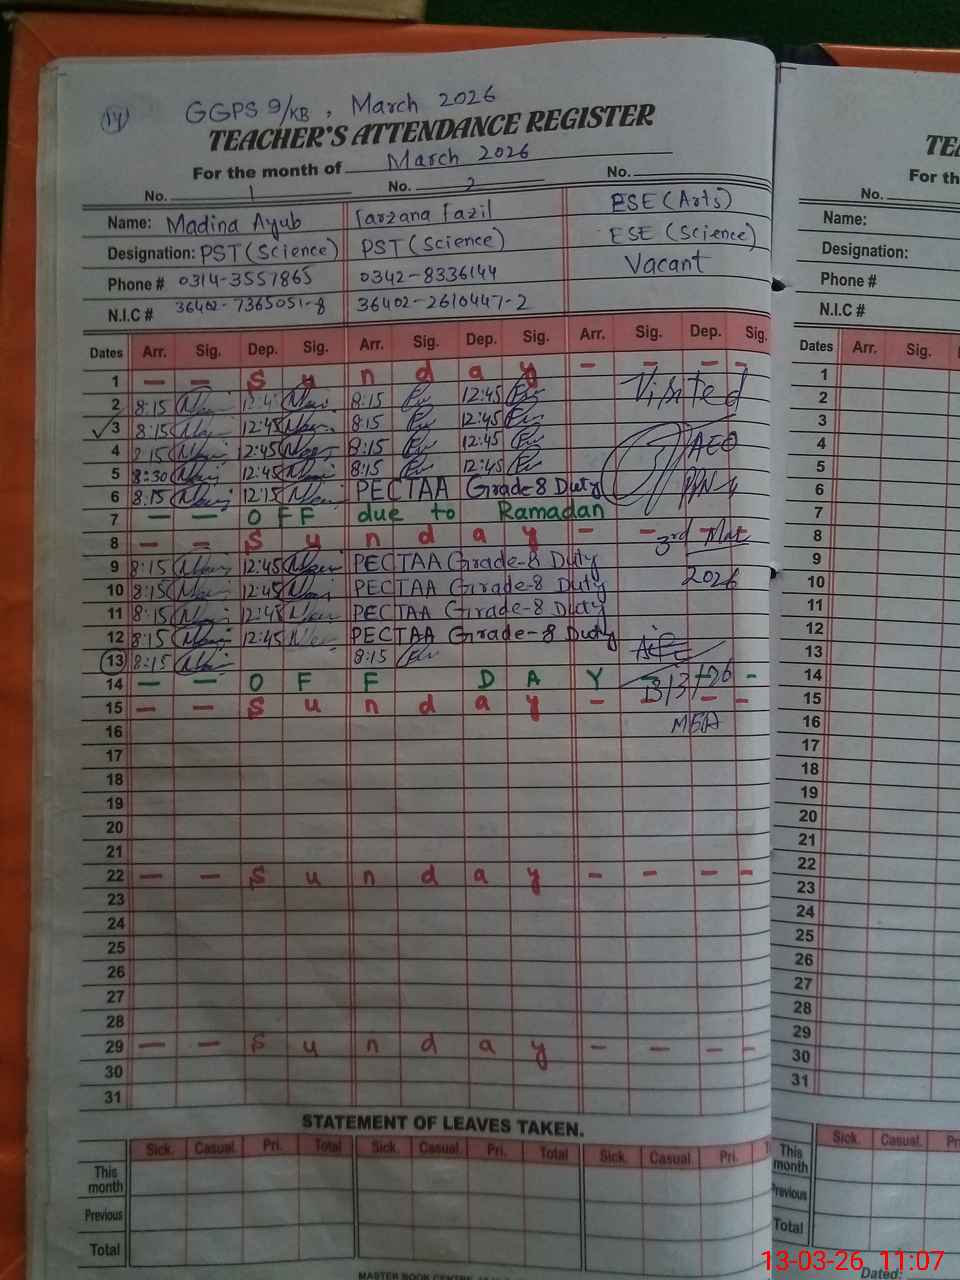 14
GGPS 9/KB, March 2026
TEACHER'S ATTENDANCE REGISTER
For the month of March 2026
No. 1 No. 2 No.
Name: Madina Ayub Farzana Fazil ESE (Arts)
Designation: PST (Science) PST (Science) ESE (Science)
Phone # 0314-3557865 0342-8336144 Vacant
N.I.C # 36402-7365051-8 36402-2610447-2
Dates Arr. Sig. Dep. Sig. Arr. Sig. Dep. Sig. Arr. Sig. Dep. Sig.
1 — — S u n d a y - - - -
2 8:15 8:15 12:45 Visited
3 8:15 12:45 8:15 12:45
4 12:45 8:15 12:45 AEO
5 8:30 12:45 8:15 12:45
6 8:15 12:15 PECTAA Grade 8 Duty
7 — — O F F due to Ramadan
8 — — S u n d a y - - - - 3rd Mar
9 8:15 12:45 PECTAA Grade-8 Duty
10 8:15 12:45 PECTAA Grade-8 Duty 2026
11 8:15 12:45 PECTAA Grade-8 Duty
12 8:15 12:45 PECTAA Grade-8 Duty
13 8:15 8:15
14 — — O F F D A Y - - 13/3/26
15 — — S u n d a y - - - -
16 MEA
17
18
19
20
21
22 — — S u n d a y - - - -
23
24
25
26
27
28
29 — — S u n d a y - - - -
30
31
STATEMENT OF LEAVES TAKEN.
Sick. Casual. Pri. Total Sick. Casual. Pri. Total Sick. Casual. Pri.
This month
Previous
Total
No.
Name:
Designation:
Phone #
N.I.C #
Dates Arr. Sig.
1
2
3
4
5
6
7
8
9
10
11
12
13
14
15
16
17
18
19
20
21
22
23
24
25
26
27
28
29
30
31
Sick. Casual.
This month
Previous
Total
Dated:
13-03-26 11:07